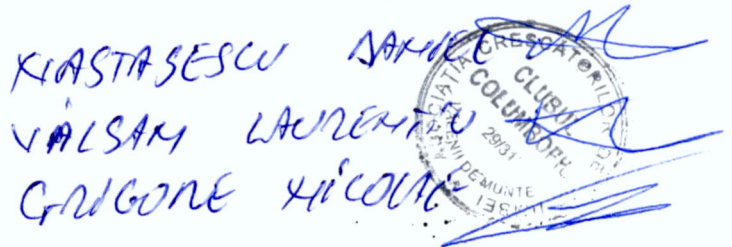 NASTASESCU DANIEL
VÂLSAN LAURENȚIU
GRIGORE NICOLAE
ASOCIATIA CRESCATORILOR
CLUBUL
COLUMBOFIL
29/31
DE MUNTE